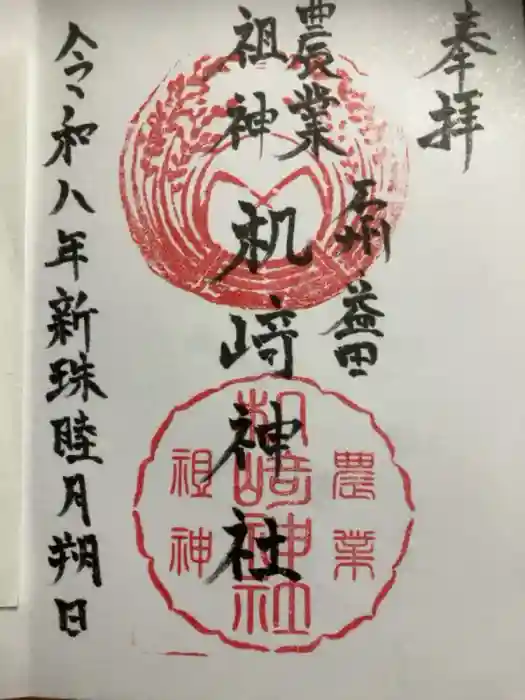 奉拝
農業
祖神
石州 益田
机崎神社
農業
机崎神社
祖神
令和八年新珠睦月朔日